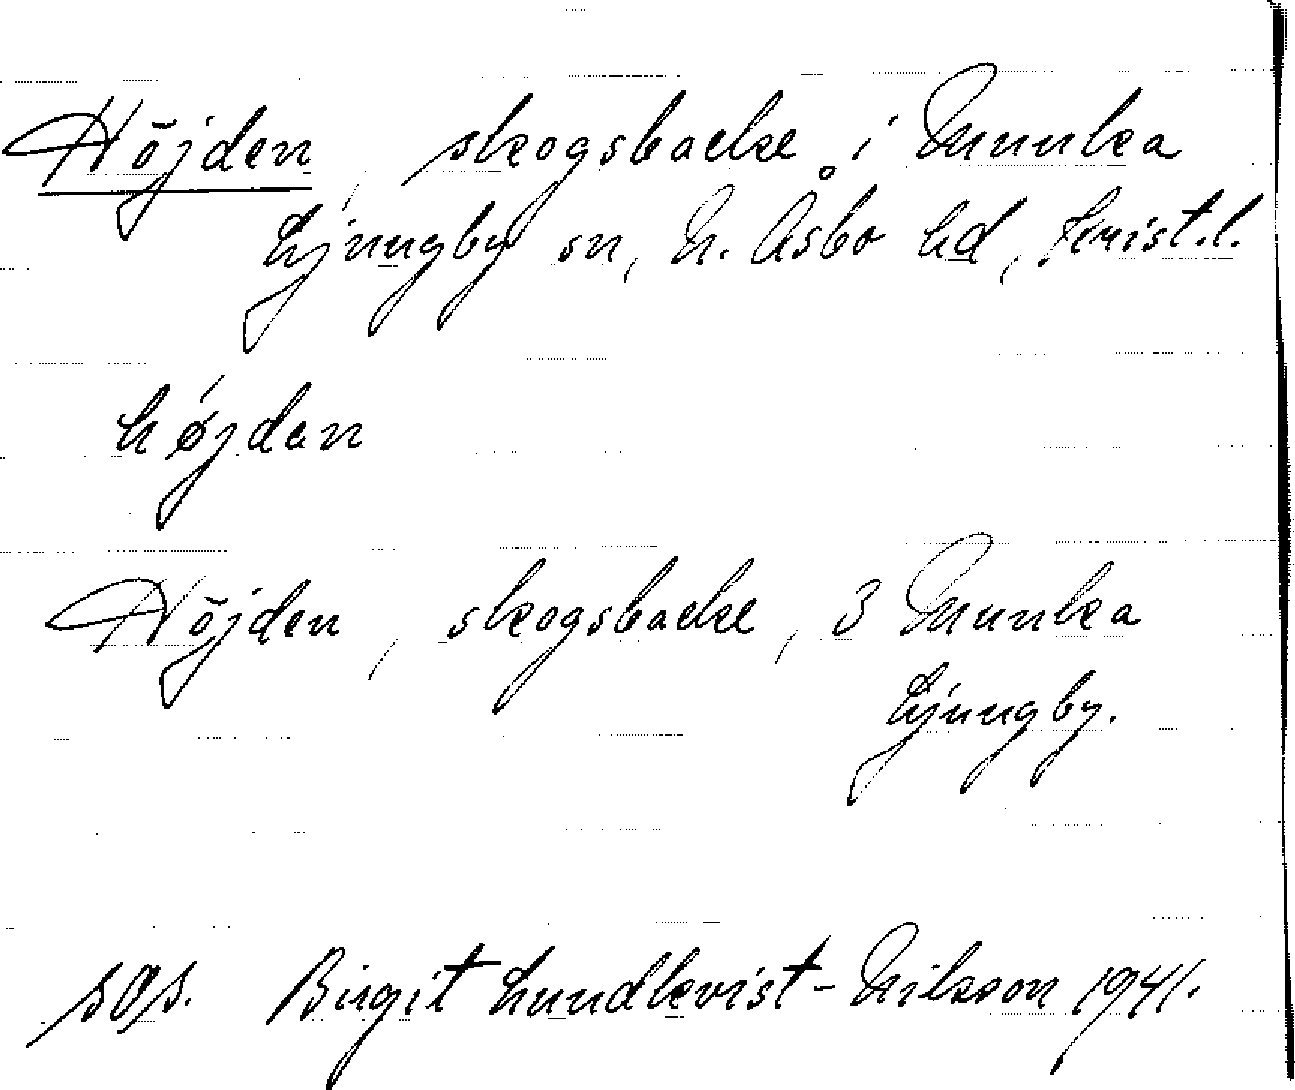 Höjden, skogsbacke i Munka
Ljungby sn, N. Åsbo hd, Krist.l.
højdan
Höjden, skogsbacke, 3 Munka
Ljungby.
Birgit Lundkvist-Nilsson 1941.